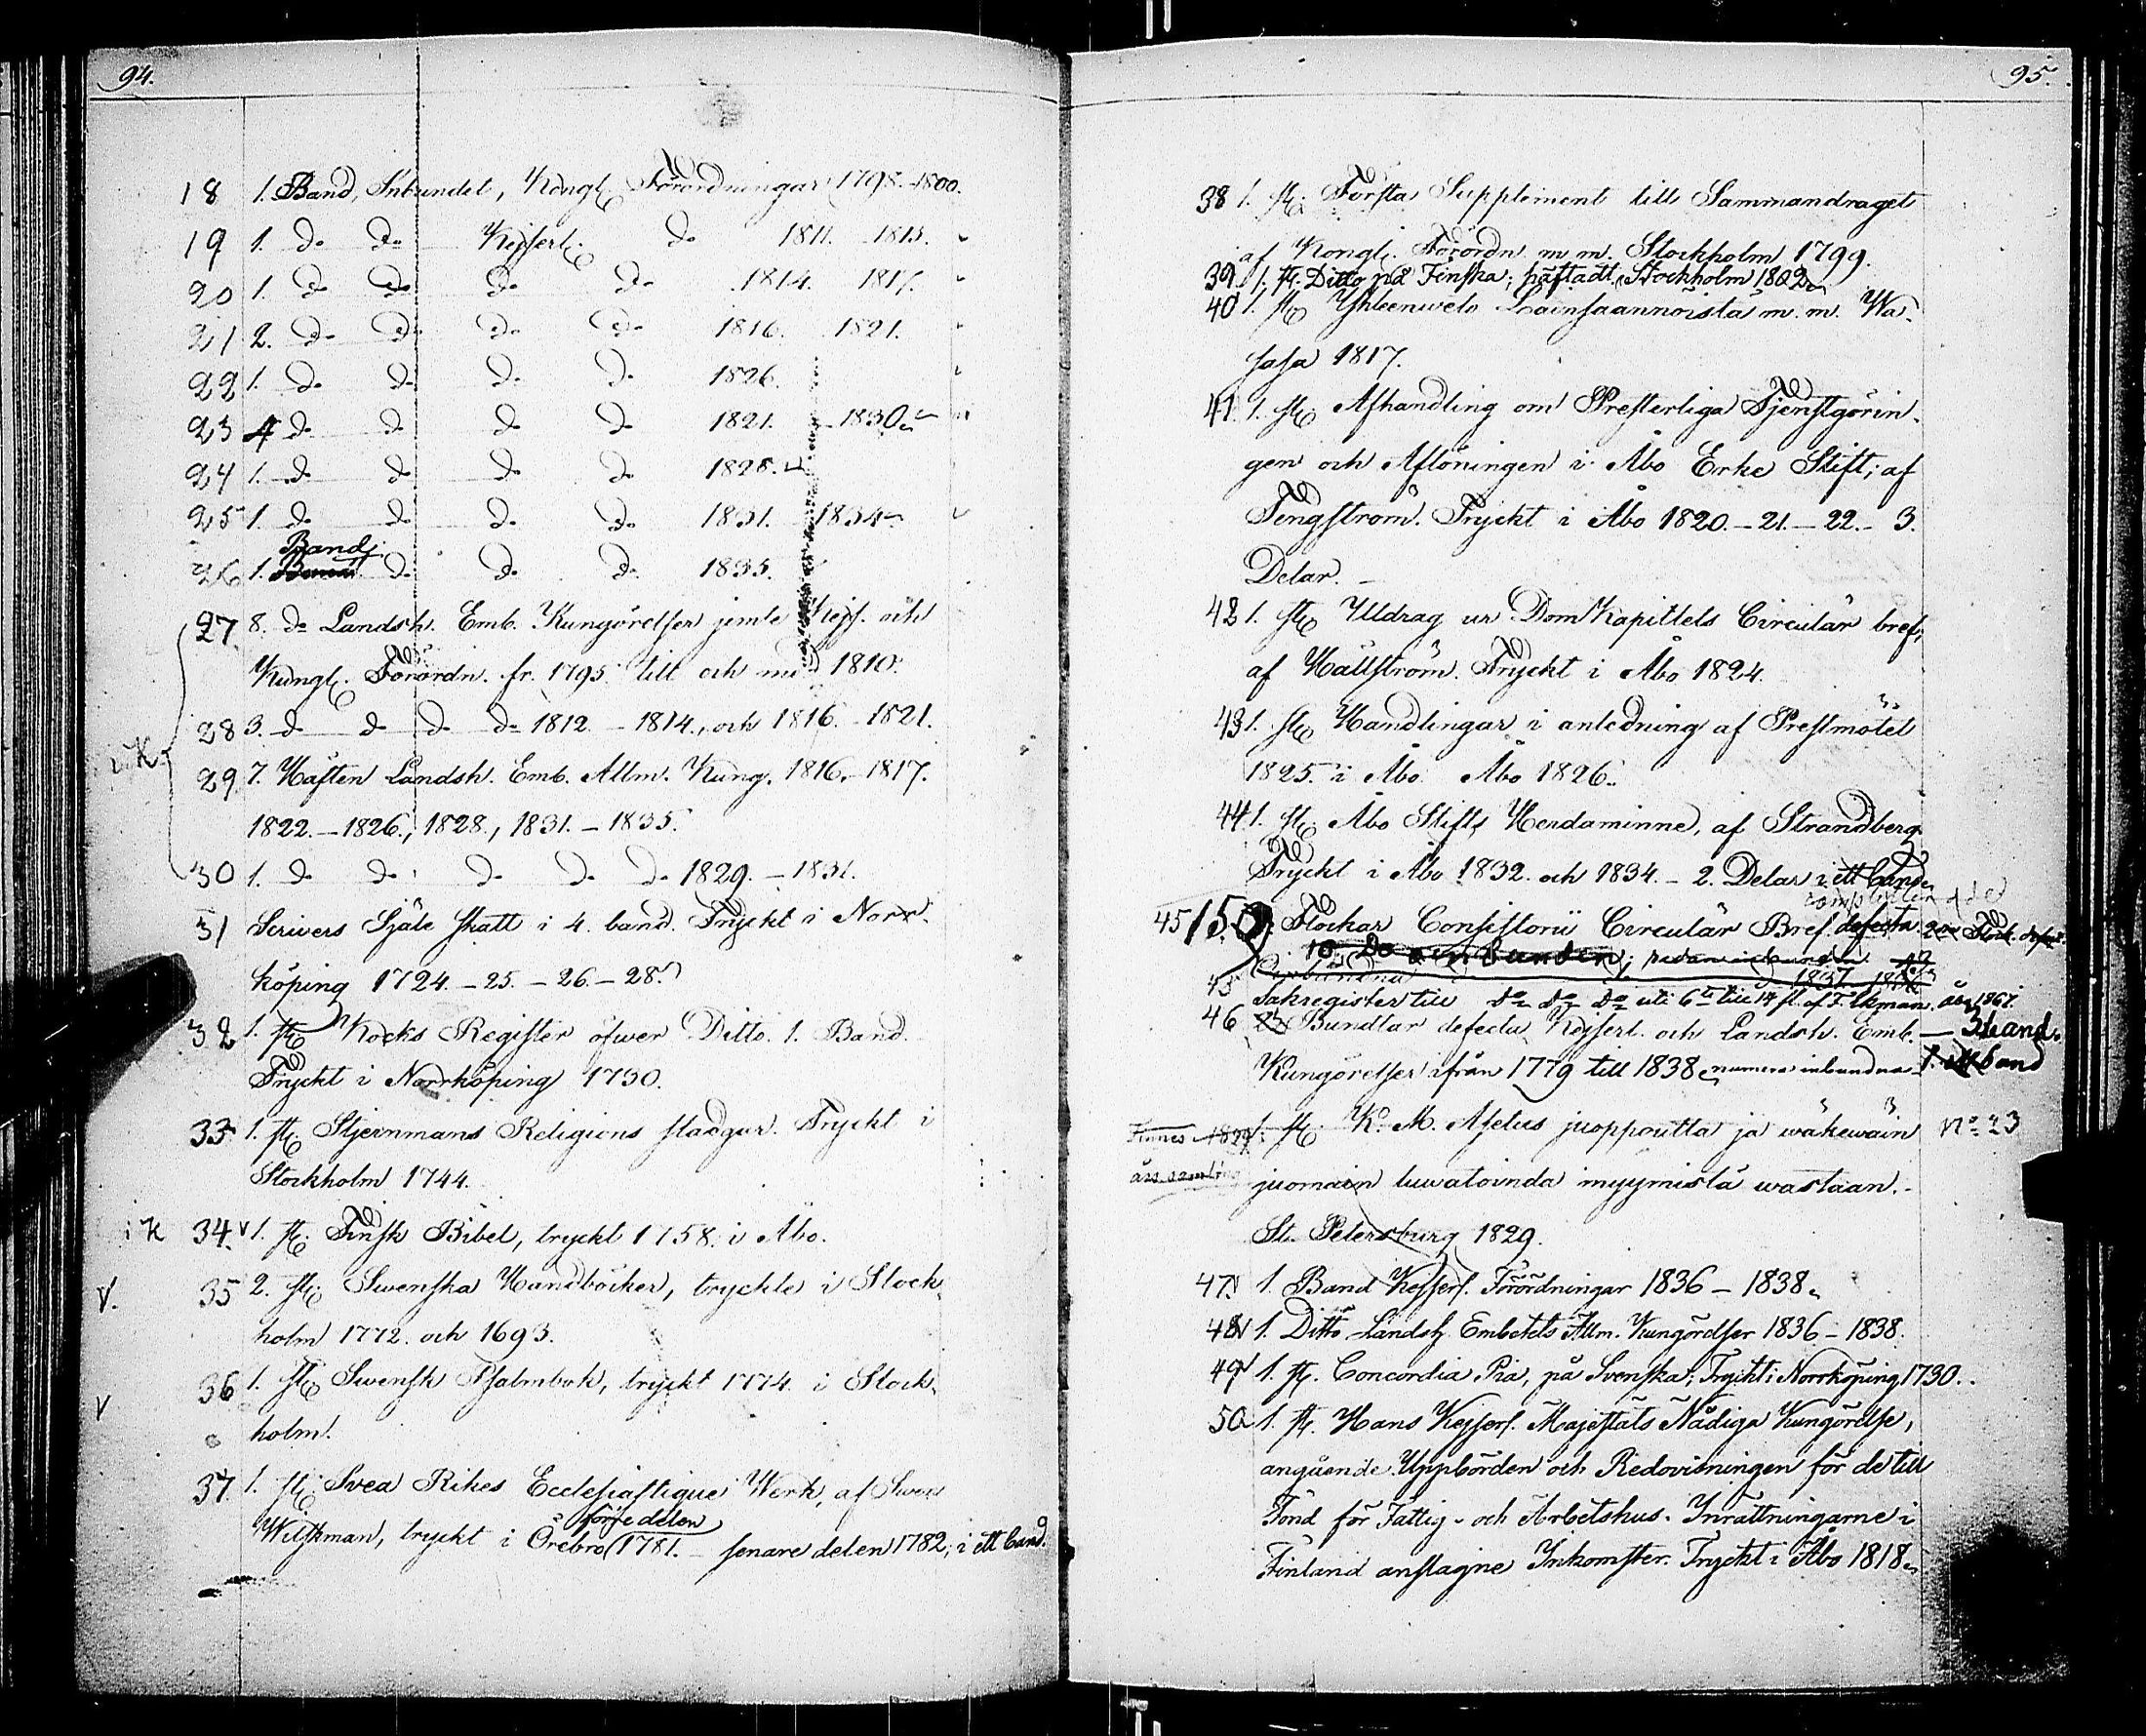 94.
18 1. Band, Inbundet, Kongl. Förordningar 1798.-1800.
19 1. do do Kejserl. do 1811. 1813.
20 1. do do do do 1814. 1817.
21 2. do do do do 1816. 1821.
22 1. do do do do 1826.
23 4 do do do do 1821. - 1830.
24 1. do do do do 1828.
25 1. do do do do 1831. 1834
Band
26 1. do do do 1835.
27. 8. do Landsh. Emb. Kungörelser jemte Kejs. och
Kungl. Förordn. fr. 1795. till och med 1810.
28 3. do do do do 1812. - 1814., och 1816. - 1821.
29. 7. Häften Landsh. Emb. Allm. Kung. 1816.-1817.
1822.-1826., 1828., 1831.-1835.
30 1. do do do do do 1829. - 1831.
31 Scrivers Själe skatt i 4. band. Tryckt i Norr-
köping 1724.-25.-26.-28.
32 1. st. Kocks Register öfwer Ditto. 1. Band.
Tryckt i Norrköping 1730.
33 1. st. Stjernmans Religions stadgar. Tryckt i
Stockholm 1744.
i K 34. v 1. st. Finsk Bibel, tryckt 1758. i Åbo.
V. 35 2. st. Swenska Handböcker, tryckte i Stock-
holm 1772. och 1693.
V 36 1. st. Swensk Psalmbok, tryckt 1774. i Stock-
holm.
37. 1. st. Svea Rikes Ecclesiastique Werk, af Swen
förre delen
Wilskman, tryckt i Örebro 1781. - senare delen 1782, i ett band.
95.
38 1. st. Första Supplement till Sammandraget
af Kongl. Förordn. m. m. Stockholm 1799.
39. 1. st. Ditto på Finska; häftadt, Stockholm 1802
40 1. st. Yhteenweto Lainsaannöistä m. m. Wa-
sasa 1817.
41. 1. st. Afhandling om Presterliga Tjenstgörin-
gen och Aflöningen i Åbo Erke Stift; af
Tengström. Tryckt i Åbo 1820.-21.-22.- 3.
Delar. -
42 1. st. Utdrag ur DomKapittels Circulär bref,
af Hällström. Tryckt i Åbo 1824.
43 1. st. Handlingar i anledning af Prestmötet
1825. i Åbo. Åbo 1826.
44 1. st. Åbo Stifts Herdaminne, af Strandberg
Tryckt i Åbo 1832. och 1834. - 2. Delar i ett band
45 Flockar Consistorii Circulär Bref. defecta
10 Do oinbunden;
1837
45 Sakregister till do do do uti 6te till 14 fl. af F. Ekman. år 1861.
46 Bundtar defecta Kejserl. och Landsh. Emb. - 3 band.
Kungörelser ifrån 1779 till 1838 numera inbundna 1. ett band
Finnes 1829 1. st. K. M. Asetus juoppoutta ja wäkewäin No 23
års samling juomain luwatoinda myymistä wastaan. -
St. Petersburg 1829.
47. 1. Band Kejserl. Förordningar 1836 - 1838.
48 1. Ditto Landsh. Embetets Allm. Kungörelser 1836 - 1838.
49 1. st. Concordia Pia, på Svenska; Tryckt i Norrköping 1730.
50 1. st. Hans Kejserl. Majestäts Nådiga Kungörelse,
angående Uppbörden och Redovisningen för de till
Fond för Fattig- och Arbetshus- Inrättningarne i
Finland anslagne Inkomster. Tryckt i Åbo 1818.